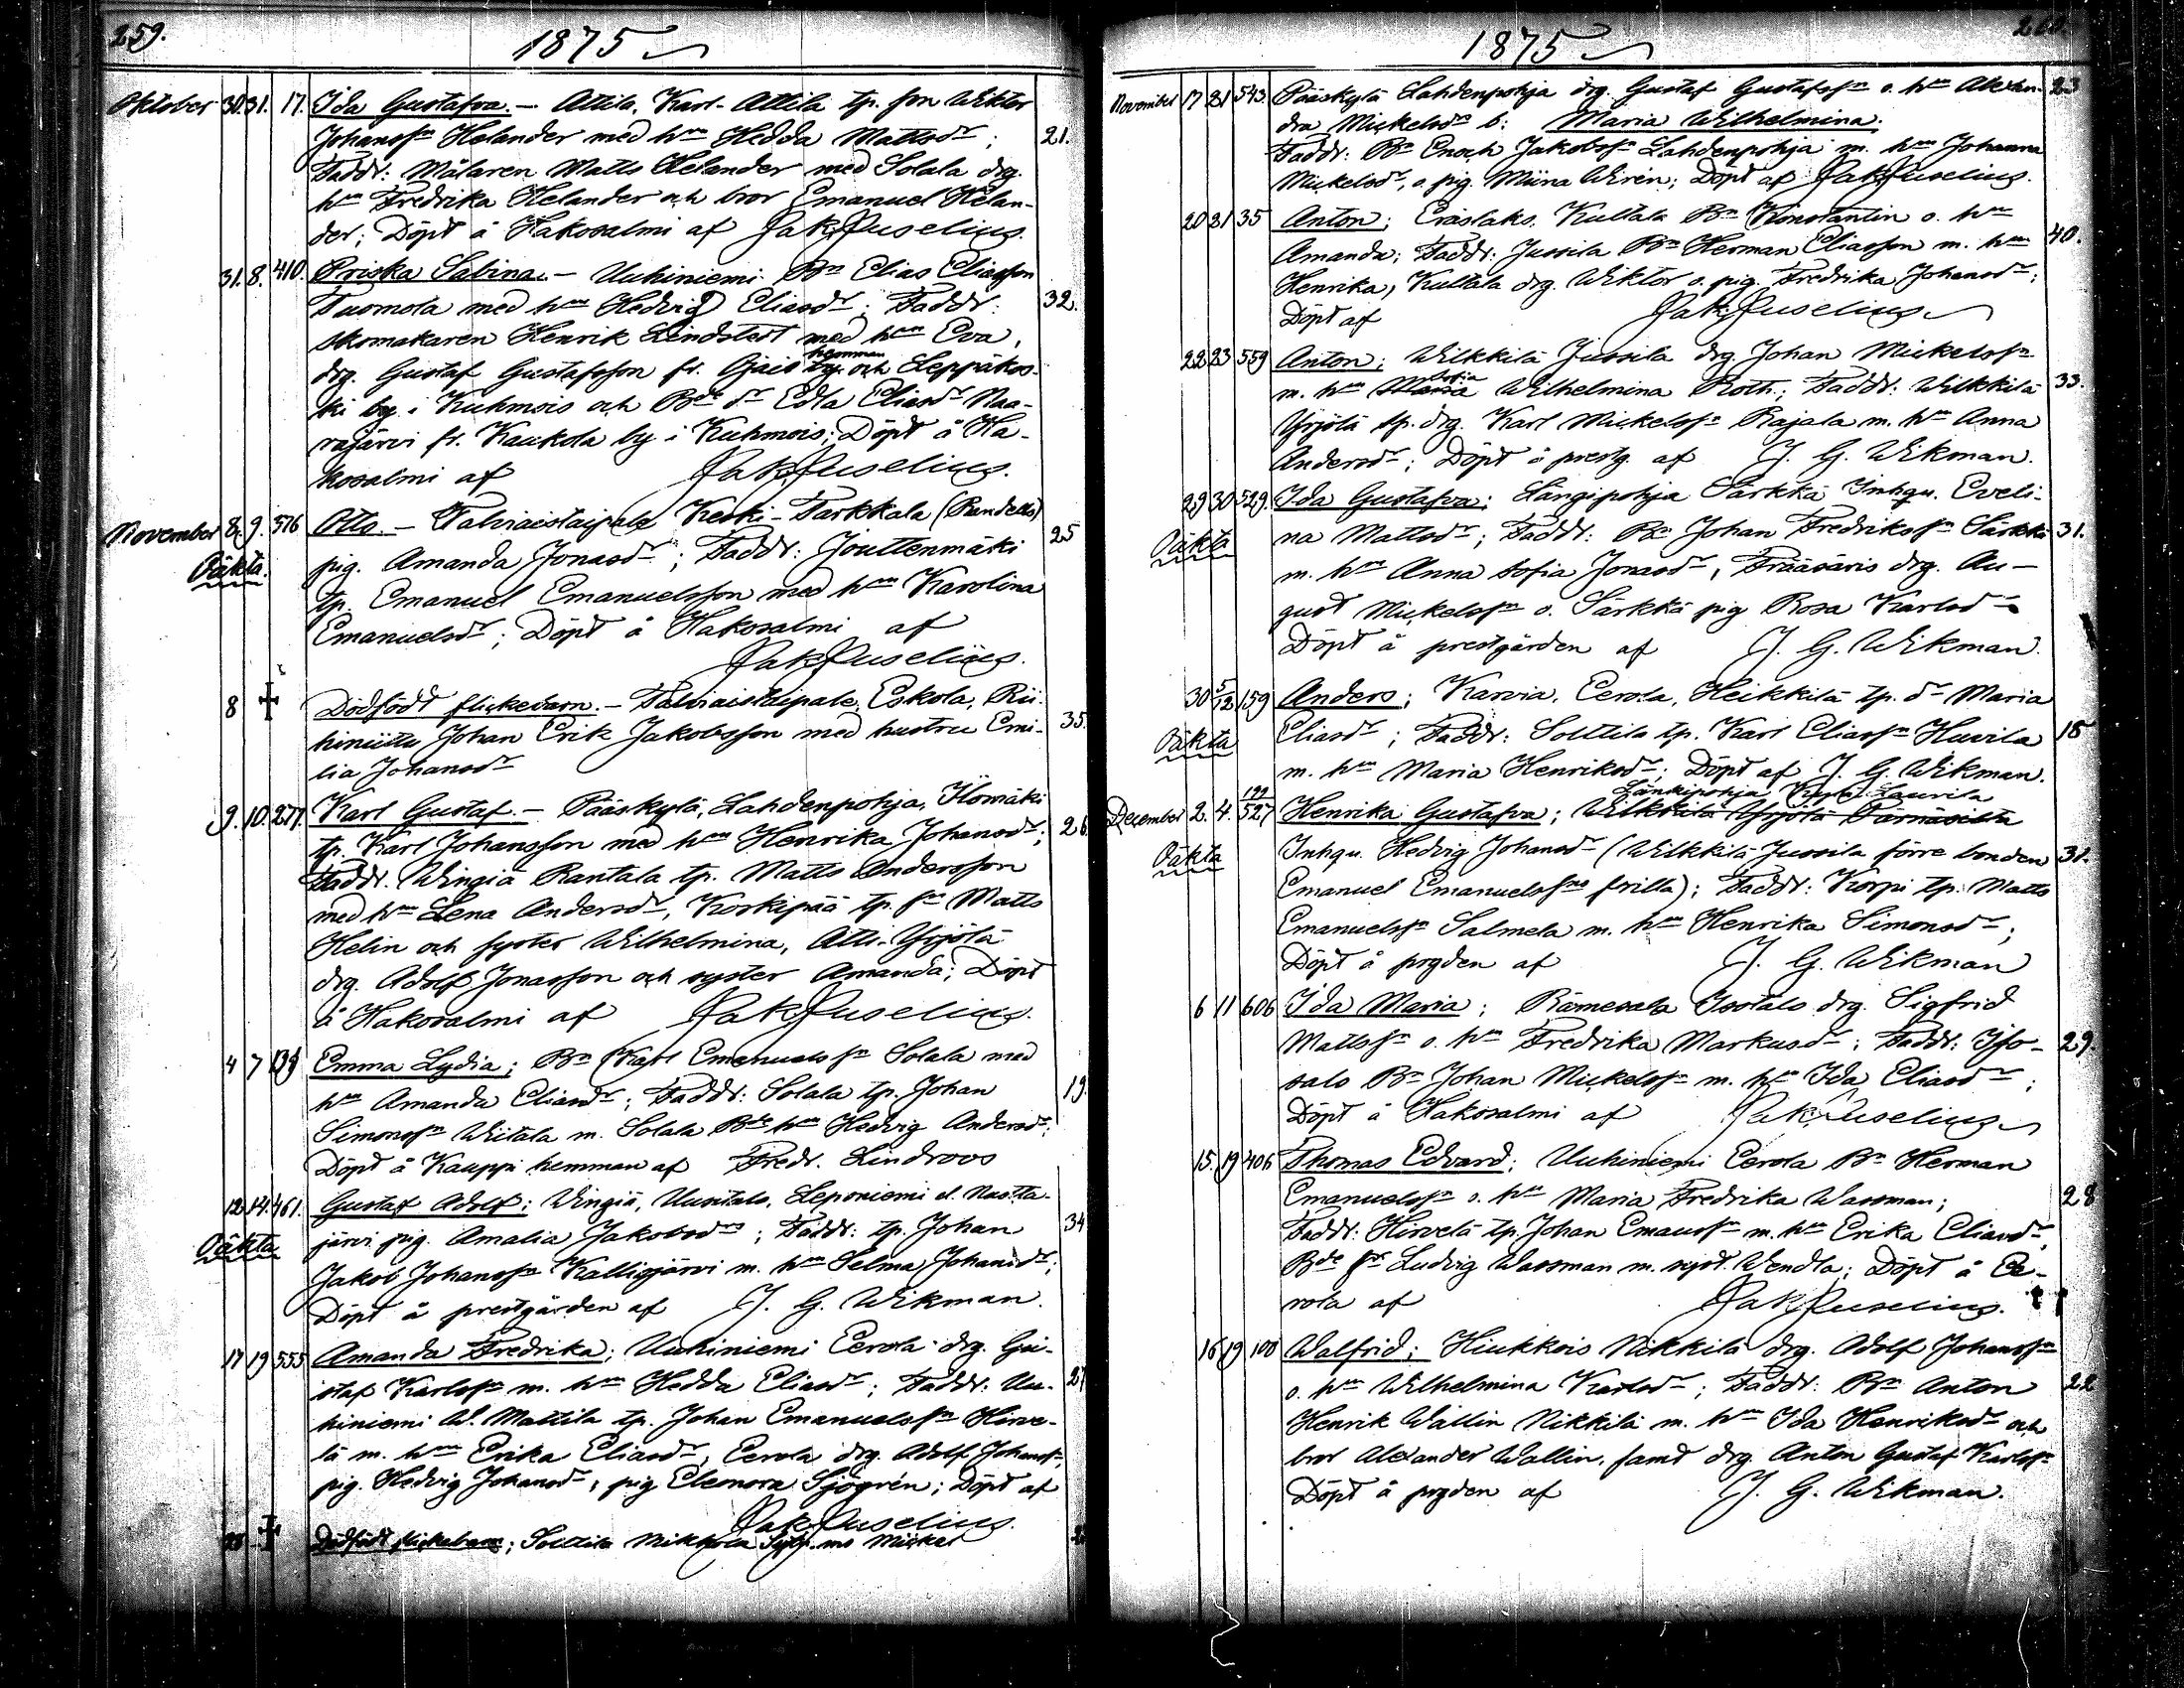 259.
1875
Oktober 30. 31. 17. Ida Gustafva. – Attila, Karl-Attila tp. son Wiktor
Johanss:n Helander med h:u Hedda Mattsd:r; 21.
Faddr: Målaren Matts Helander med Solala drg.
h:u Fredrika Helander och bror Emanuel Helan-
der; Döpt å Hakosalmi af Jak. Juselius.
31. 8. 410. Priska Sabina. – Uuhiniemi B:n Elias Eliasson
Tuomola med h:u Hedvig Eliasd:r; Faddr: 32.
skomakaren Henrik Lindstedt med h:u Eva,
hemman
drg. Gustaf Gustafsson fr. och Leppäkos-
ki by i Kuhmois och B:de d:r Edla Eliasd:r Naa-
rajärvi fr. Kaukola by i Kuhmois; Döpt å Ha-
kosalmi af Jak. Juselius.
November 8. 9. 576 Otto. – Talviaistaipale Keski-Tarkkala 25
Oäkta. pig. Amanda Jonasd:r; Faddr: Jouttenmäki
tp. Emanuel Emanuelsson med h:u Karolina
Emanuelsd:r; Döpt å Hakosalmi af
Jak. Juselius.
8 ✝ Dödfödt flickebarn. – Talviaistaipale, Eskola, Rii-
hiniitu Johan Erik Jakobsson med hustru Emi- 35.
lia Johansd:r
9. 10. 277. Karl Gustaf. – Pääskylä, Lahdenpohja, Ilomäki
tp. Karl Johansson med h:u Henrika Johansd:r; 26.
Faddr. Wingiä Rantala tp. Matts Andersson
med h:u Lena Andersd:r, Koskipää tp. s:n Matts
Helin och syster Wilhelmina, Atti-Yrjölä
drg. Adolf Jonasson och syster Amanda; Döpt
å Hakosalmi af Jak. Juselius.
4 7 Emma Lydia; B:n Karl Emanuelss:n Solala med
h:u Amanda Eliasd:r; Faddr: Solala tp. Johan 19.
Simonss:n Wiitala m. Solala B:de h:u Hedvig Andersd:r;
Döpt å Kauppi hemman af Fredr. Lindroos
12. 14. 461. Gustaf Adolf; Wingiä, Uusitalo, Leponiemi
Oäkta järvi pig. Amalia Jakobsd:rs; Faddr: tp. Johan 34
Jakob Johanss:n Kalliojärvi m. h:u Selma Johansd:r;
Döpt å prestgården af J. G. Wikman.
17 19 555 Amanda Fredrika; Uuhiniemi Eerola drg. Gu-
staf Karlss:n m. h:u Hedda Eliasd:r; Faddr: Uu- 27
hiniemi W. Mattila tp. Johan Emanuelss:n Hirve-
lä m. h:u Erika Eliasd:r, Eerola drg. Adolf Johanss:n,
pig. Hedvig Johansd:r, pig Eleonora Sjögrén; Döpt af
Jak. Juselius.
✝ Dödfödt flickebarn; Solttila Mikkola
260.
1875
November 17 21 543. Pääskylä Lahdenpohja drg. Gustaf Gustafss:n o. h:u Alexan- 23
dra Mickelsd:rs b: Maria Wilhelmina.
Faddr: B:n Enoch Jakobss:n Lahdenpohja m. h:u Johanna
Mickelsd:r, o. pig. Miina Wirén; Döpt af Jak. Juselius.
20 21 35 Anton; Eräslaks. Kultala B:n Konstantin o. h:u
Amanda; Faddr: Jussila B:n Herman Eliasson m. h:u 40.
Henrika, Kultala drg. Wiktor o. pig. Fredrika Johansd:r;
Döpt af Jak. Juselius
22 23 559 Anton; Wilkkilä Jussila drg. Johan Mickelss:n
Sofia
m. h:u Maria Wilhelmina Roth.; Faddr: Wilkkilä 33.
Yrjölä tp. drg. Karl Mickelss:n Rajala m. h:u Anna
Andersd:r; Döpt å prestg. af J. G. Wikman.
29 30 529. Ida Gustafva; Längipohja Särkkä Inhgn. Eveli-
Oäkta na Mattsd:r; Faddr: B:n Johan Fredrikss:n Särkkä 31.
m. h:u Anna Sofia Jonasd:r, Prääsäris drg. Au-
gust Mickelss:n o. Särkkä pig Rosa Karlsd:r
Döpt å prestgården af J. G. Wikman.
30 5/12 159 Anders; Karvia, Eerola, Heikkilä tp. d:r Maria
Oäkta Eliasd:r; Faddr: Solttila tp. Karl Eliass:n Huvila 18
m. h:u Maria Henriksd:r; Döpt af J. G. Wikman.
Länkipohja Laurila
December 2. 4. 527 Henrika Gustafva; Wilkkilä Yrjölä
Oäkta Inhgn. Hedvig Johansd:r (Wilkkilä Jussila förre bonden 31.
Emanuel Emanuelss:ns frilla); Faddr: Korpi tp. Matts
Emanuelss:n Salmela m. h:u Henrika Simonsd:r;
Döpt å prgden af J. G. Wikman
6 11 606 Ida Maria; Rämesala Isotalo drg. Sigfrid
Mattss:n o. h:u Fredrika Markusd:r; Faddr: Iso- 29.
salo B:n Johan Mickelss:n m. h:u Ida Eliasd:r;
Döpt å Hakosalmi af Jak. Juselius
15. 19 406 Thomas Edvard; Uuhiniemi Eerola B:n Herman
Emanuelss:n o. h:u Maria Fredrika Wassman; 28
Faddr: Hirvelä tp. Johan Emanss:n m. h:u Erika Eliasd:r,
B:de s:n Ludvig Wassman m. syst. Wendla; Döpt å Ee-
rola af Jak. Juselius.
16 19 100 Walfrid; Hiukkois Nikkilä drg. Adolf Johanss:n
o. h:u Wilhelmina Karlsd:r; Faddr: B:n Anton 22
Henrik Wallin Nikkilä m. h:u Ida Henriksd:r och
bror Alexander Wallin, samt drg. Anton Gustaf Karlss:n
Döpt å prgden af J. G. Wikman.